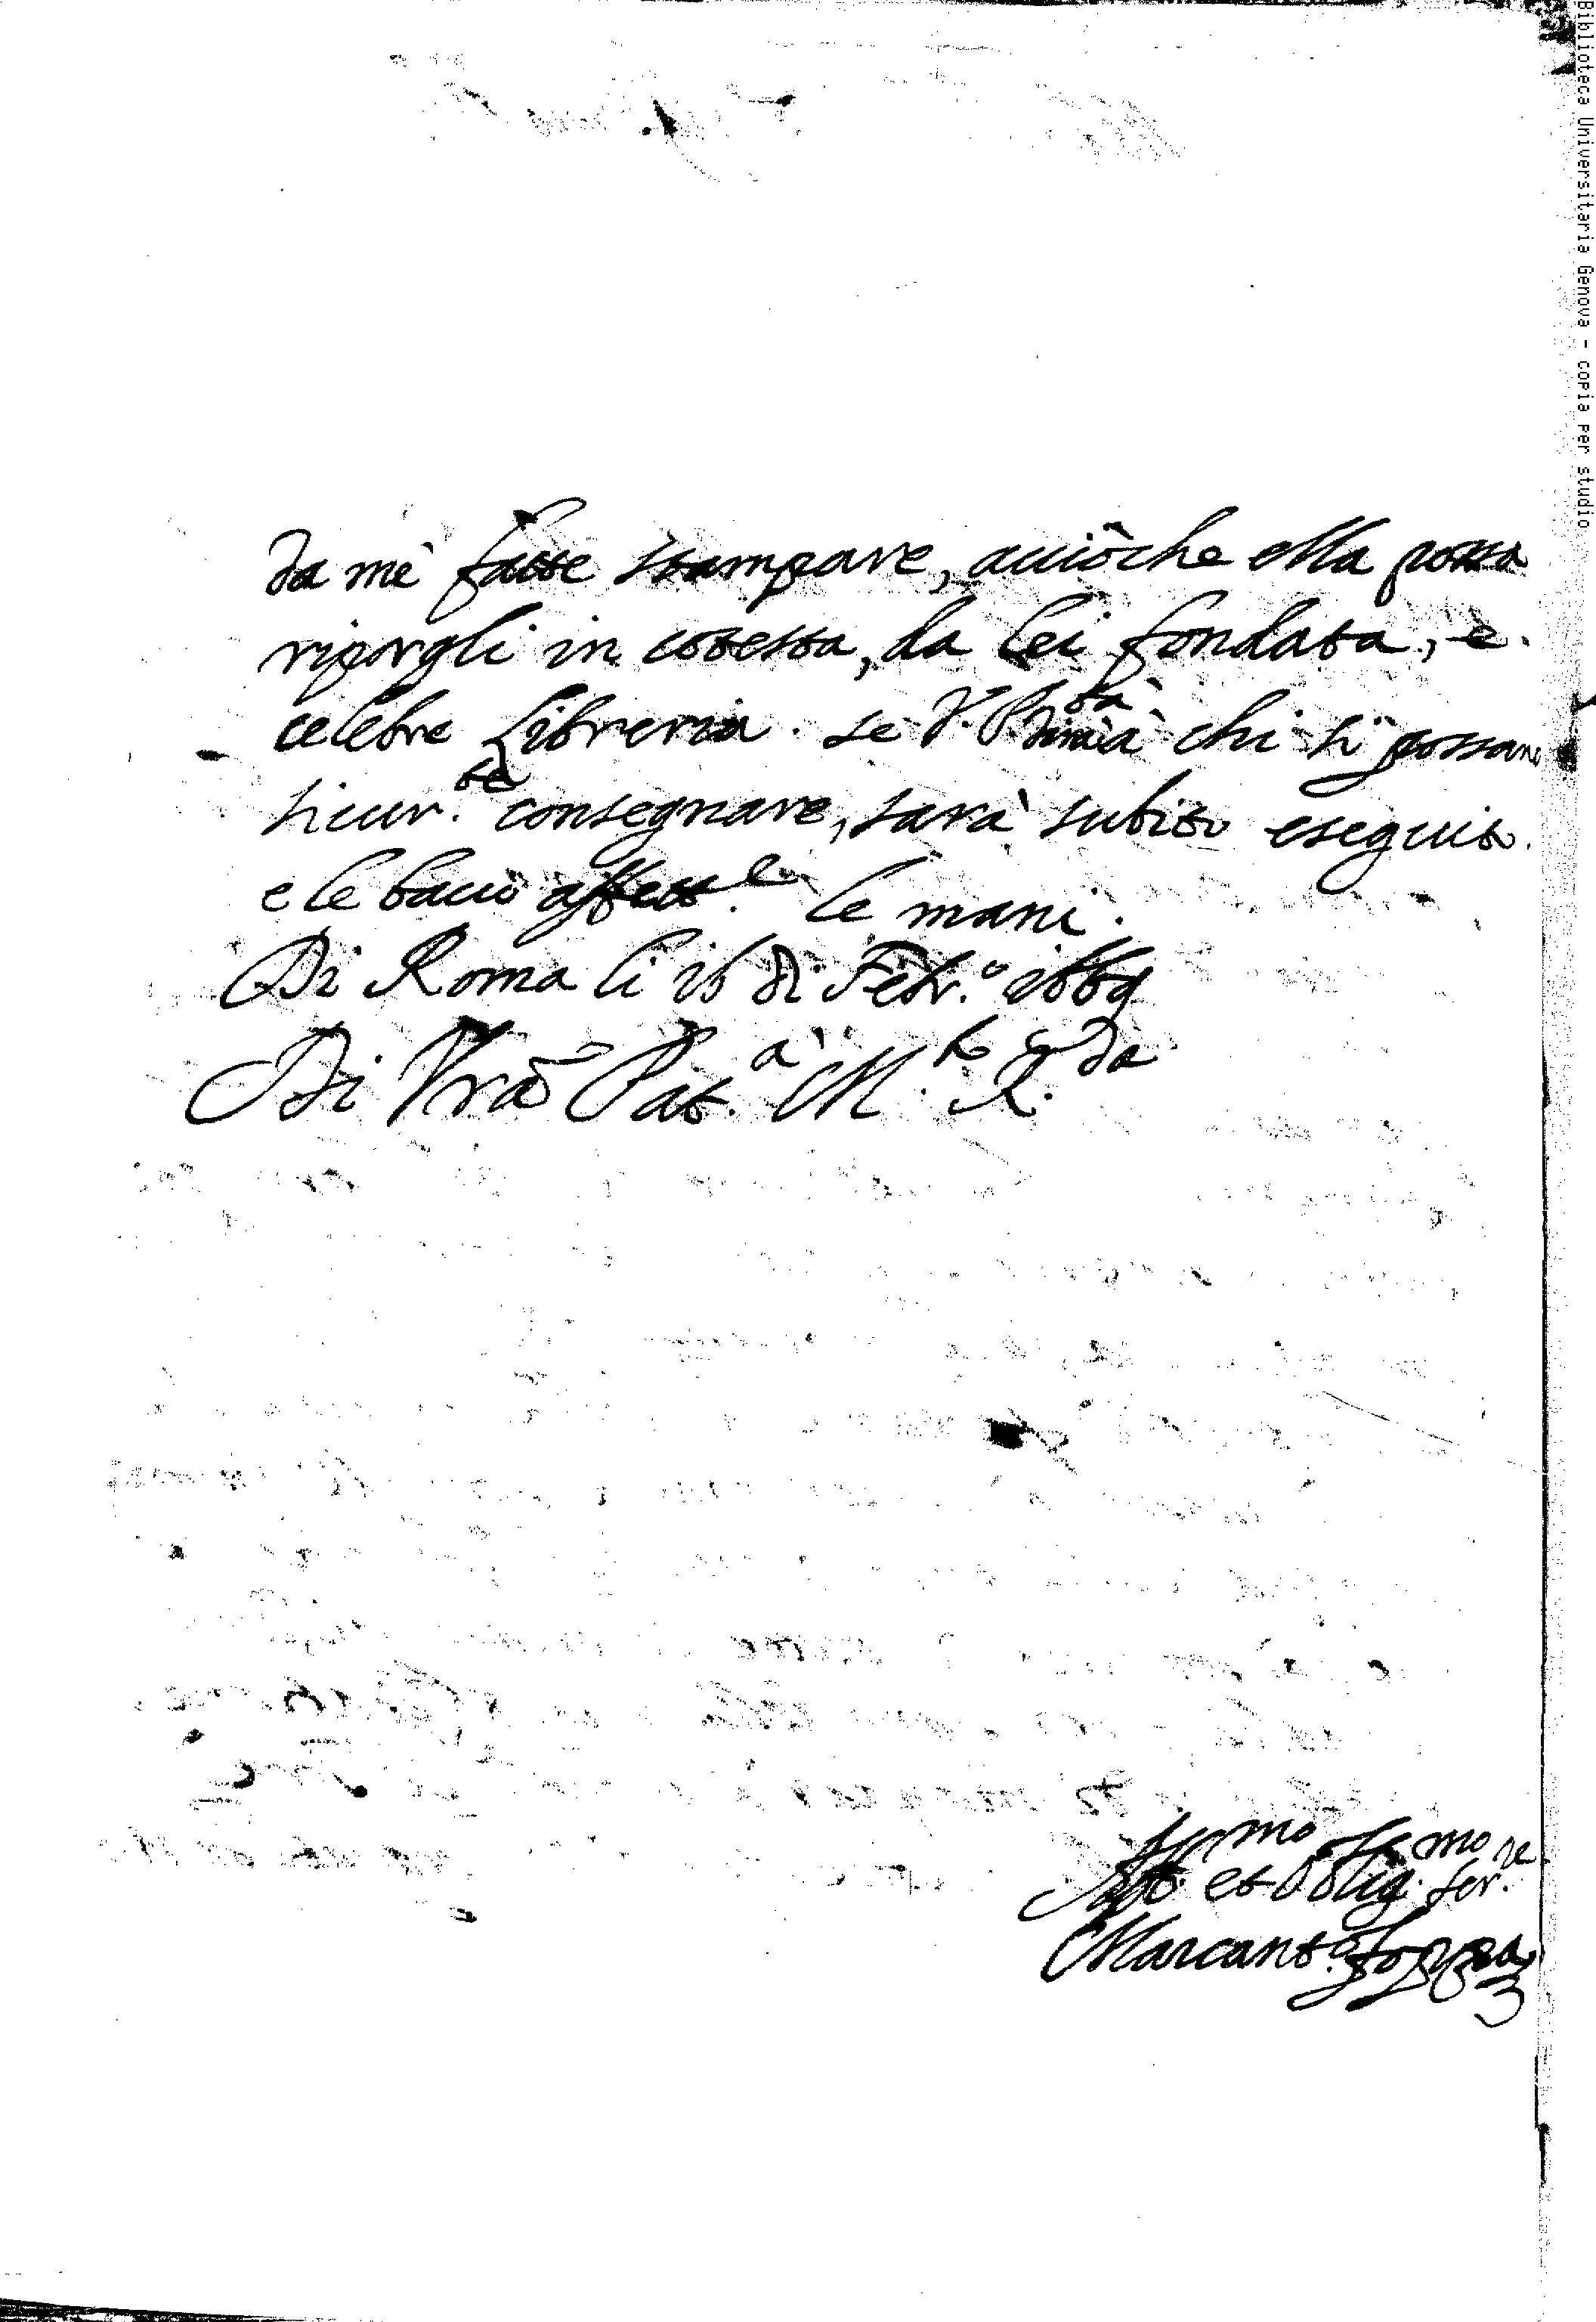 da mè fatte stampare, acciòche ella possa
riporgli in cotesta, da lei fondata, e
celebre Libreria. se V. P.tà dirrà à chi si possano
sicur.te consegnare, sarà subito eseguito.
e le bacio affett.e le mani.
Di Roma li 16 di Febr.o 1669
Di Vrã Pat.à M.to R.da
Aff.mo et Oblig.mo ser.re
Marcant.o
Biblioteca Universitaria Genova - copia per studio